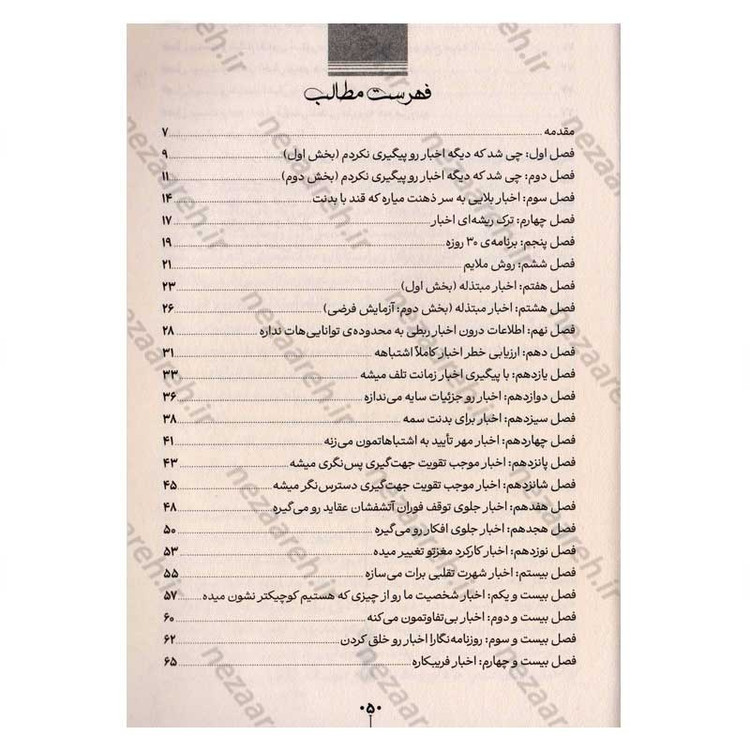 فهرست مطالب
مقدمه ۷
فصل اول: چی شد که دیگه اخبار رو پیگیری نکردم (بخش اول) ۹
فصل دوم: چی شد که دیگه اخبار رو پیگیری نکردم (بخش دوم) ۱۱
فصل سوم: اخبار بلایی به سر ذهنت میاره که قند با بدنت ۱۴
فصل چهارم: ترک ریشه‌ای اخبار ۱۷
فصل پنجم: برنامه‌ی ۳۰ روزه ۱۹
فصل ششم: روش ملایم ۲۱
فصل هفتم: اخبار مبتذله (بخش اول) ۲۳
فصل هشتم: اخبار مبتذله (بخش دوم: آزمایش فرضی) ۲۶
فصل نهم: اطلاعات درون اخبار ربطی به محدوده‌ی توانایی‌هات نداره ۲۸
فصل دهم: ارزیابی خطر اخبار کاملاً اشتباهه ۳۱
فصل یازدهم: با پیگیری اخبار زمانت تلف میشه ۳۳
فصل دوازدهم: اخبار رو جزئیات سایه می‌ندازه ۳۶
فصل سیزدهم: اخبار برای بدنت سمه ۳۸
فصل چهاردهم: اخبار مهر تأیید به اشتباهاتمون می‌زنه ۴۱
فصل پانزدهم: اخبار موجب تقویت جهت‌گیری پس‌نگری میشه ۴۳
فصل شانزدهم: اخبار موجب تقویت جهت‌گیری دسترس‌نگر میشه ۴۵
فصل هفدهم: اخبار جلوی توقف فوران آتشفشان عقاید رو می‌گیره ۴۸
فصل هجدهم: اخبار جلوی افکار رو می‌گیره ۵۰
فصل نوزدهم: اخبار کارکرد مغزتو تغییر میده ۵۳
فصل بیستم: اخبار شهرت تقلبی برات می‌سازه ۵۵
فصل بیست و یکم: اخبار شخصیت ما رو از چیزی که هستیم کوچیکتر نشون میده ۵۷
فصل بیست و دوم: اخبار بی‌تفاوتمون می‌کنه ۶۰
فصل بیست و سوم: روزنامه‌نگارا اخبار رو خلق کردن ۶۲
فصل بیست و چهارم: اخبار فریبکاره ۶۵
۵
nezaareh.ir